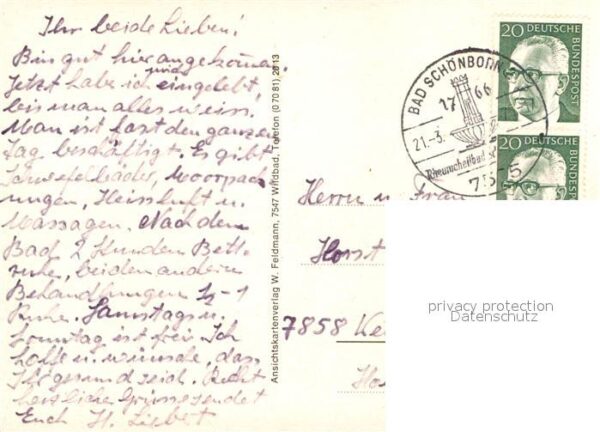 Ihr beide Lieben!
Bin gut hier angekommen.
Jetzt habe ich mich eingelebt,
bis man alles weiss.
Man ist fast den ganzen
Tag beschäftigt. Es gibt
Schwefelbäder, Moorpack
ungen, Heissluft u.
Massagen. Nach dem
Bad 2 Stunden Bett-
ruhe, beiden anderen
Behandlungen ½-1
Ruhe. Samstags u.
Sonntag ist frei. Ich
hoffe u. wünsche, dass
Ihr gesund seid. Recht
herzliche Grüsse sendet
Euch H.
Ansichtskartenverlag W. Feldmann, 7547 Wildbad, Telefon (0 70 81) 2613
20 DEUTSCHE BUNDESPOST
20 DEUTSCHE BUNDESPOST
BAD SCHÖNBORN
17 66
21.-3.
Rheumaheilbad
75-5
Herrn u. Frau
Horst
7858
privacy protection
Datenschutz